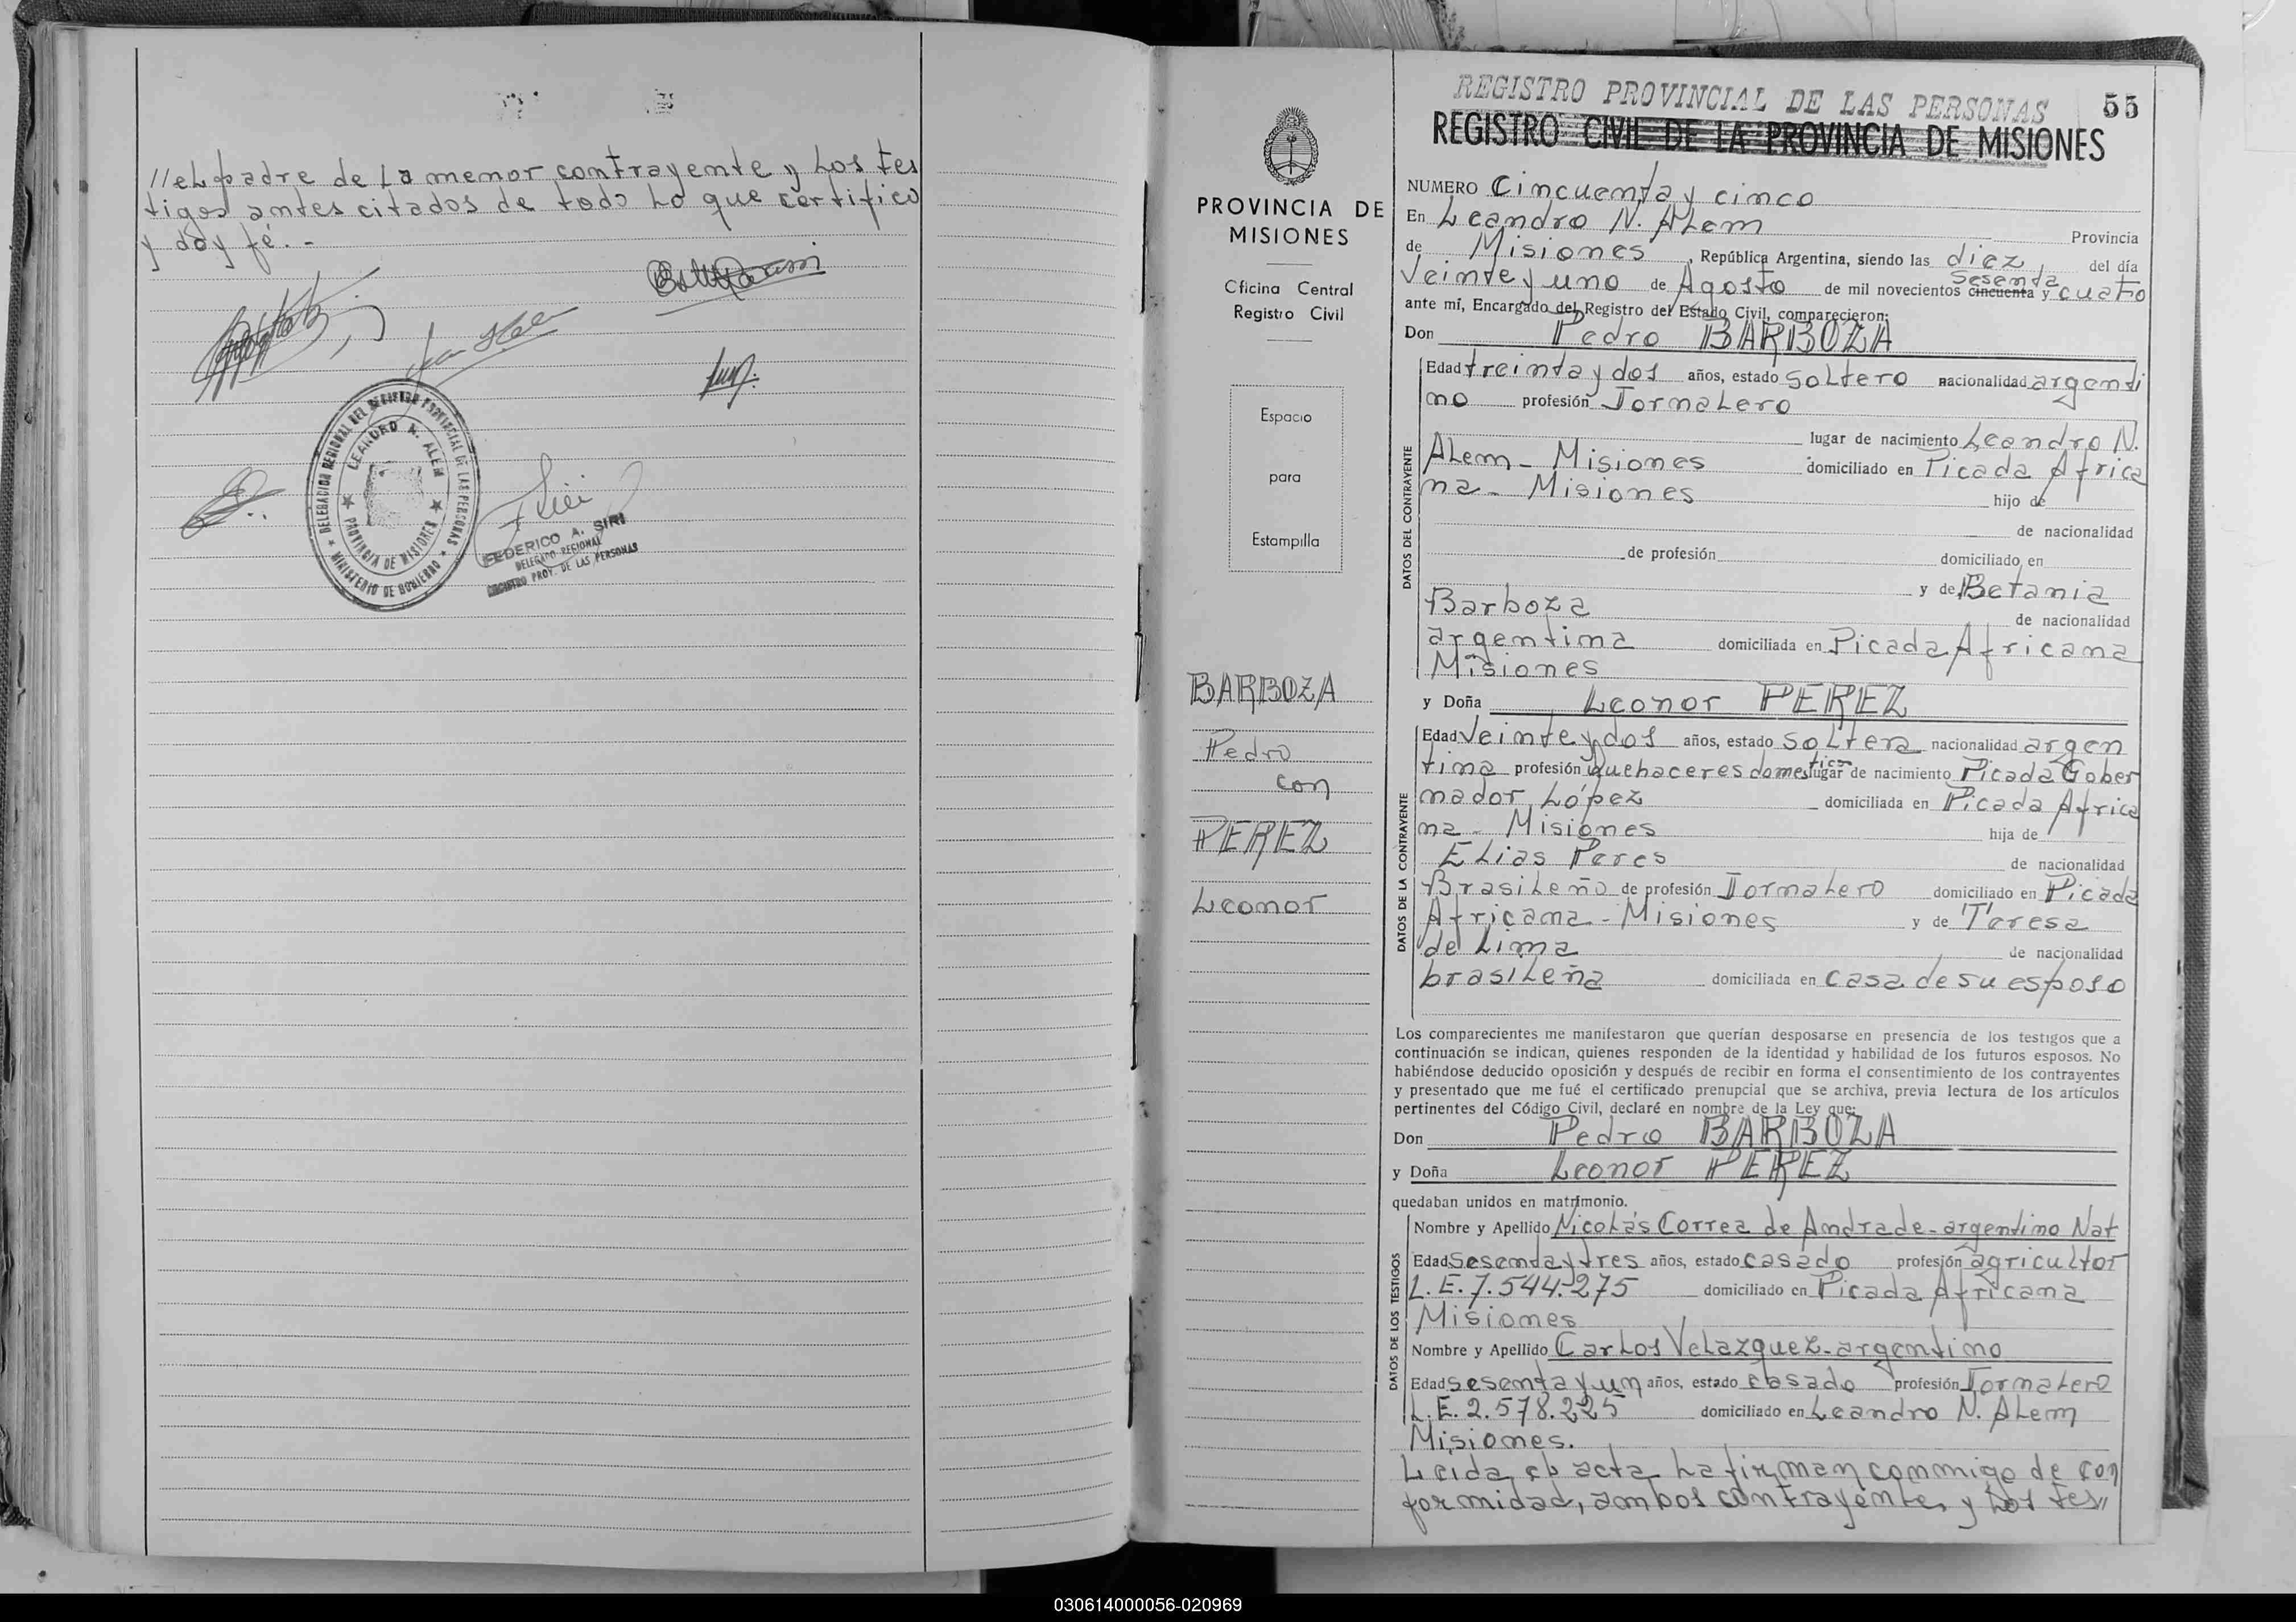 //el padre de la menor contrayente y los tes
tigos antes citados de todo lo que certifico
y doy fé.-
DELEGACION REGIONAL DEL REGISTRO PROVINCIAL DE LAS PERSONAS
LEANDRO N. ALEM
PROVINCIA DE MISIONES
MINISTERIO DE GOBIERNO
FEDERICO A. SIRI
DELEGADO REGIONAL
REGISTRO PROV. DE LAS PERSONAS
PROVINCIA DE
MISIONES
Oficina Central
Registro Civil
Espacio
para
Estampilla
BARBOZA
Pedro
con
PEREZ
Leonor
REGISTRO PROVINCIAL DE LAS PERSONAS
55
REGISTRO CIVIL DE LA PROVINCIA DE MISIONES
NUMERO Cincuenta y cinco
En Leandro N. Alem
Provincia
de Misiones, República Argentina, siendo las diez del día
sesenta
veinte y uno de Agosto de mil novecientos cincuenta y cuatro
ante mí, Encargado del Registro del Estado Civil, comparecieron:
Don Pedro BARBOZA
DATOS DEL CONTRAYENTE
Edad treinta y dos años, estado soltero nacionalidad argenti
no profesión Jornalero
lugar de nacimiento Leandro N.
Alem - Misiones domiciliado en Picada Africa
na - Misiones hijo de
de nacionalidad
de profesión domiciliado en
y de Betania
Barboza de nacionalidad
argentina domiciliada en Picada Africana
Misiones
y Doña Leonor PEREZ
DATOS DE LA CONTRAYENTE
Edad veinte y dos años, estado soltera nacionalidad argen
tina profesión quehaceres domesticos lugar de nacimiento Picada Gober
nador López domiciliada en Picada Africa
na - Misiones hija de
Elias Peres de nacionalidad
Brasileño de profesión Jornalero domiciliado en Picada
Africana - Misiones y de Teresa
de Lima de nacionalidad
brasileña domiciliada en casa de su esposo
Los comparecientes me manifestaron que querían desposarse en presencia de los testigos que a
continuación se indican, quienes responden de la identidad y habilidad de los futuros esposos. No
habiéndose deducido oposición y después de recibir en forma el consentimiento de los contrayentes
y presentado que me fué el certificado prenupcial que se archiva, previa lectura de los artículos
pertinentes del Código Civil, declaré en nombre de la Ley que:
Don Pedro BARBOZA
y Doña Leonor PEREZ
quedaban unidos en matrimonio.
DATOS DE LOS TESTIGOS
Nombre y Apellido Nicolás Correa de Andrade - argentino Nat
Edad sesenta y tres años, estado casado profesión agricultor
L.E. 7.544.275 domiciliado en Picada Africana
Misiones
Nombre y Apellido Carlos Velazquez - argentino
Edad sesenta y un años, estado casado profesión Jornalero
L.E. 2.578.225 domiciliado en Leandro N. Alem
Misiones.
Leida el acta la firman conmigo de con
formidad, ambos contrayentes y los tes//
030614000056-020969